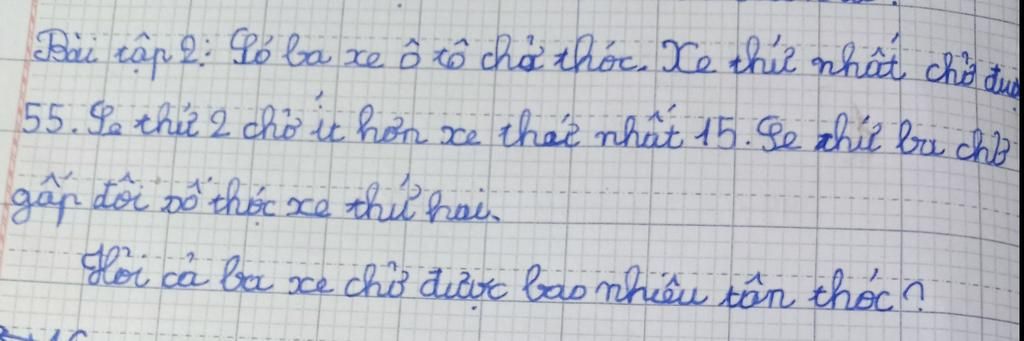 Bài tập 2: Có ba xe ô tô chở thóc. Xe thứ nhất chở đượ
55. Xe thứ 2 chở ít hơn xe thứ nhất 15. Xe thứ ba chở
gấp đôi số thóc xe thứ hai.
Hỏi cả ba xe chở được bao nhiêu tấn thóc?